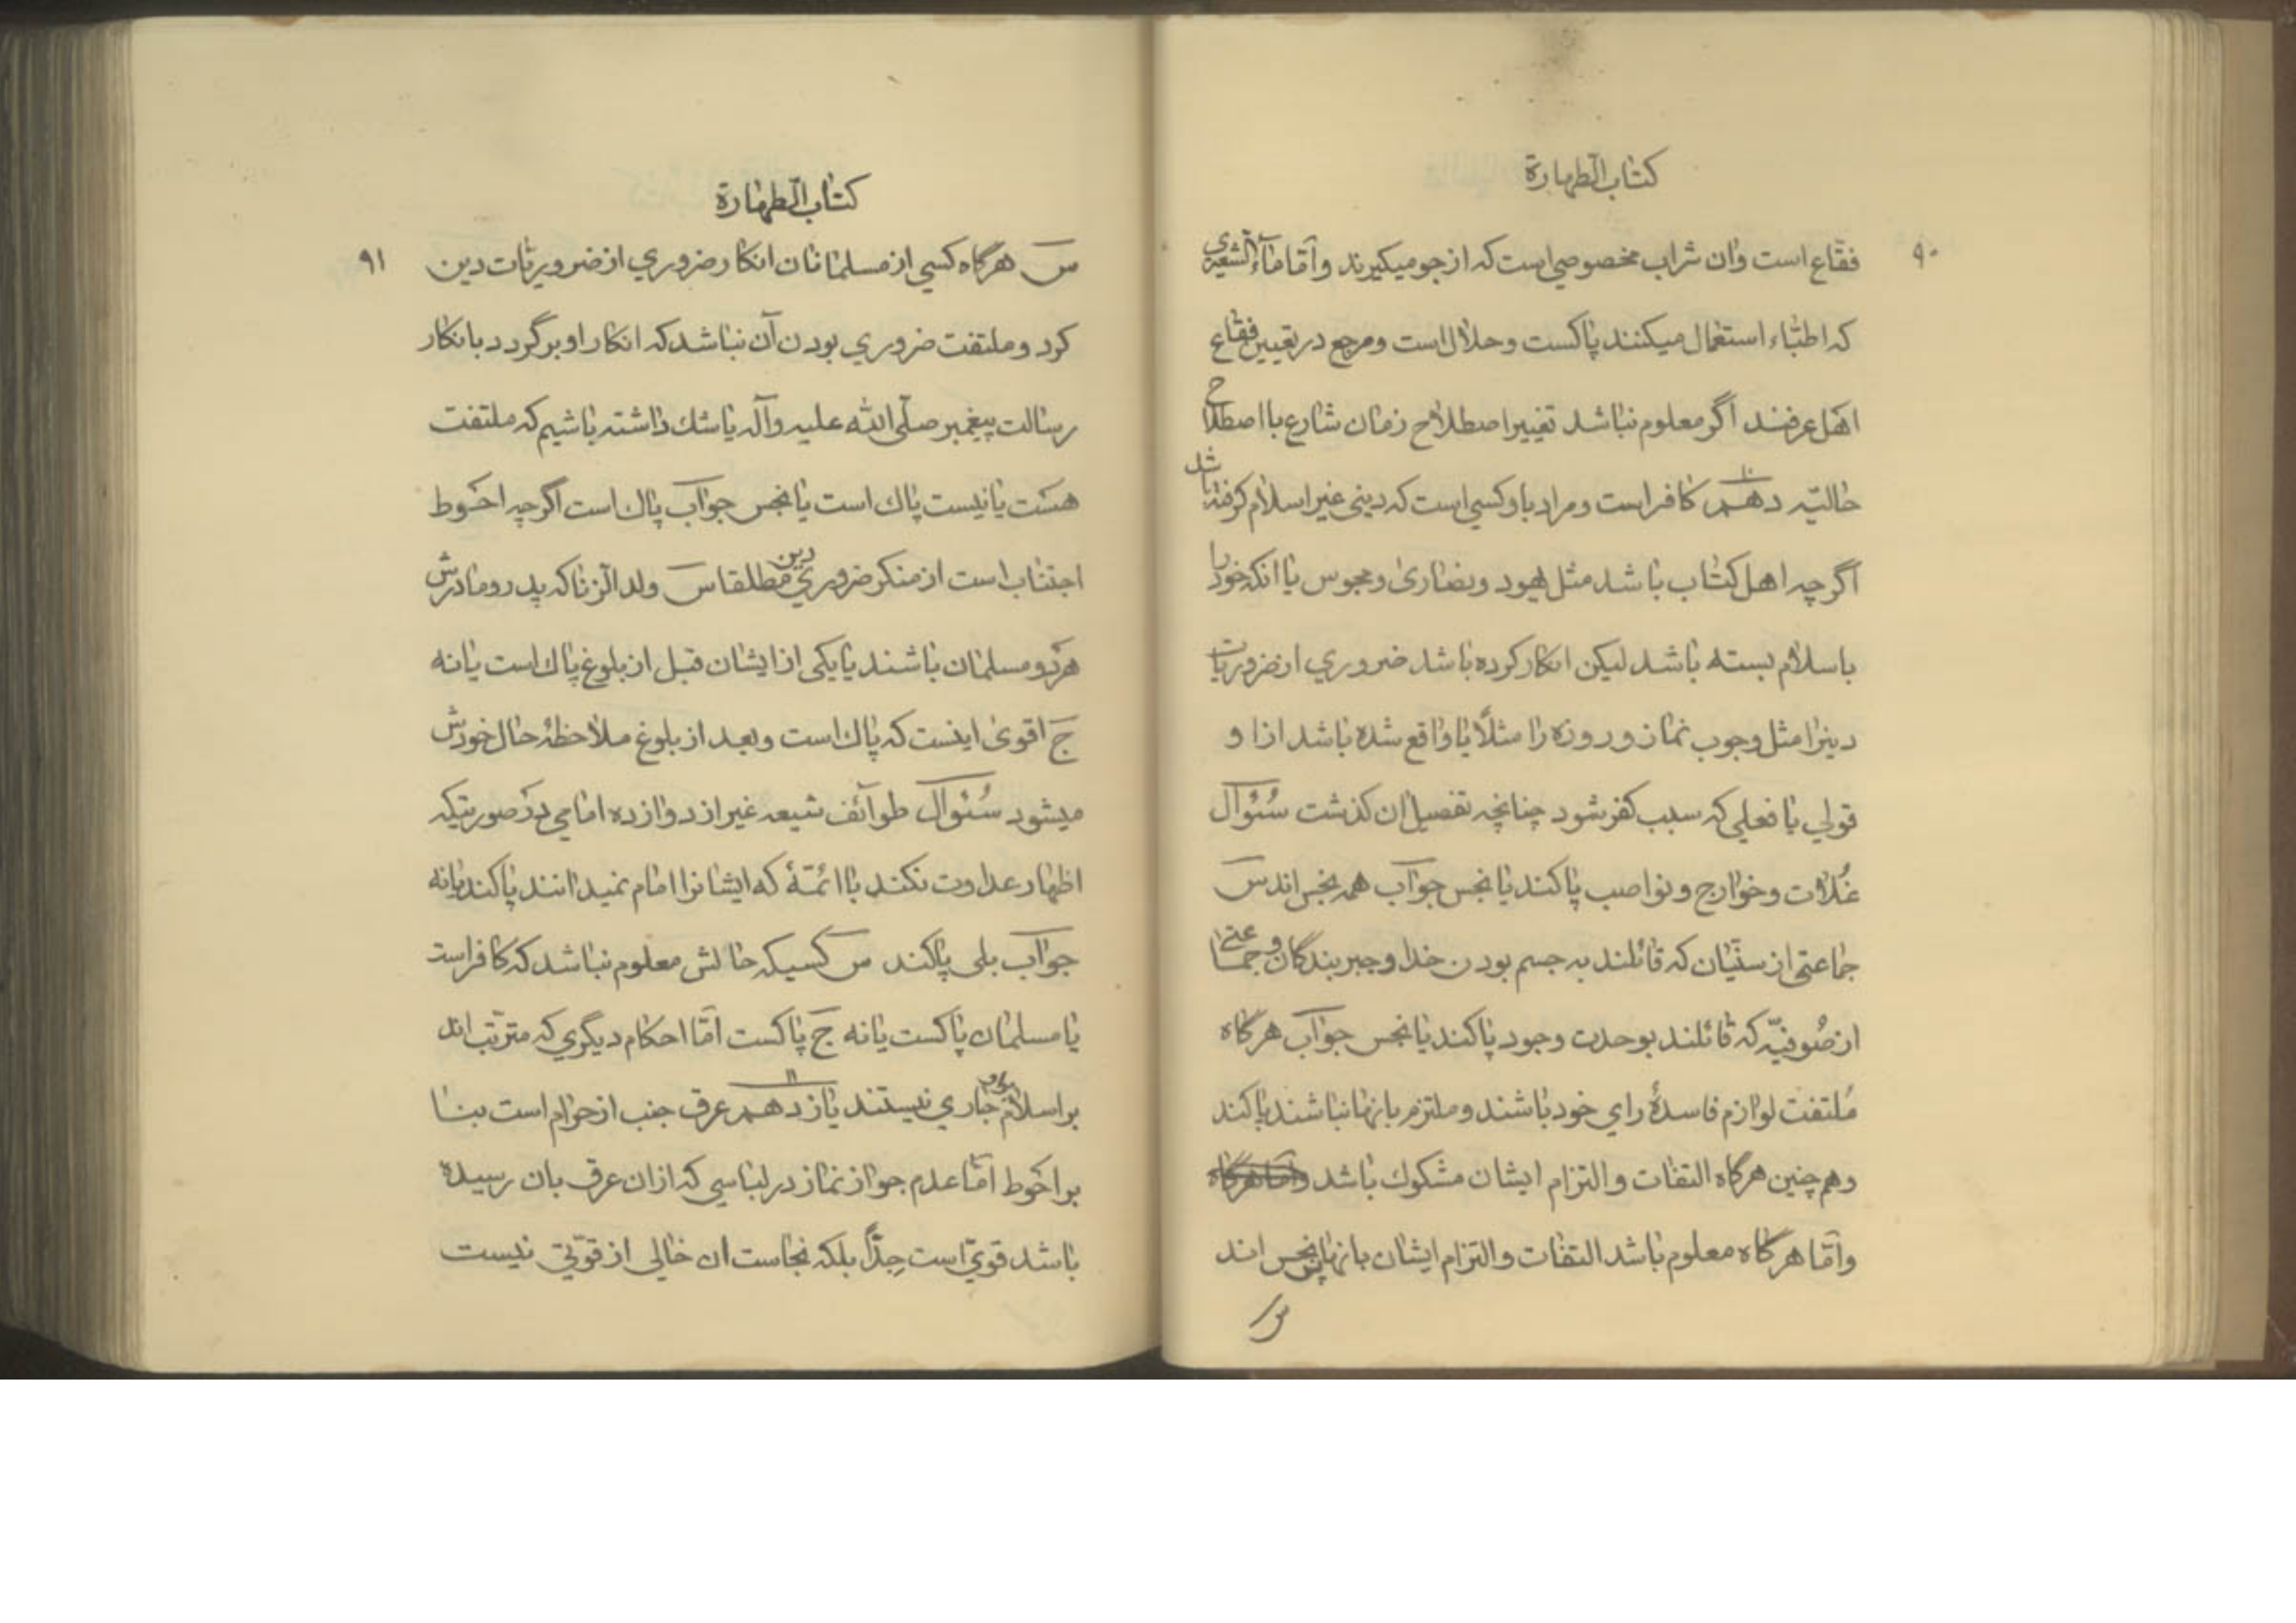 کتاب الطهارة
۹۰
فقّاع است وان شراب مخصوصی است که از جو میکیرند وامّا ماءُالشعیری
که اطبّاء استعمال میکنند پاکست وحلال است ومرجع در تعیین فقّاع
اهل عرفند اگر معلوم نباشد تغییر اصطلاح زمان شارع با اصطلاح
حالیّه دهم ۱۰ کافر است ومراد باو کسی است که دینی غیر اسلام کرفته باشد
اگرچه اهل کتاب باشد مثل یهود ونصاری ومجوس یا انکه خود را
باسلام بسته باشد لیکن انکار کرده باشد ضروری از ضروریات
دینرا مثل وجوب نماز وروزه را مثلاً یا واقع شده باشد ازا و
قولی یا فعلی که سبب کفر شود چنانچه تفصیل ان کذشت سُئوال
غُلات وخوارج ونواصب پاکند یا نجس جواب همه نجس اند س
جماعتی از سنّیان که قائلند به جسم بودن خدا وجبر بندگان و جماعتی
از صُوفیّه که قائلند بوحدت وجود پاکند یا نجس جواب هرگاه
مُلتفت لوازم فاسدهٔ رای خود باشند وملتزم بانها نباشند پاکند
وهم چنین هرگاه التفات والتزام ایشان مشکوك باشد وامّا هرگاه
وامّا هرگاه معلوم باشد التفات والتزام ایشان بانها پس نجس اند
س
کتاب الطهارة
۹۱
س هرگاه کسی از مسلمانان انکار ضروری از ضروریات دین
کرد وملتفت ضروری بودن آن نباشد که انکار او برگردد بانکار
رسالت پیغمبر صلّی الله علیه وآله یا شك داشته باشیم که ملتفت
هست یا نیست پاك است یا نجس جواب پاك است اگرچه احوط
اجتناب است از منکر ضروری دین مطلقا س ولد الزنا که پدر ومادرش
هر دو مسلمان باشند یا یکی از ایشان قبل از بلوغ پاك است یا نه
ج اقوی اینست که پاك است وبعد از بلوغ ملاحظهٔ حال خودش
میشود سُئوال طوائف شیعه غیر از دوازده امامی در صورتیکه
اظهار عداوت نکند با ائمّهٔ که ایشانرا امام نمیدانند پاکند یا نه
جواب بلی پاکند س کسیکه حالش معلوم نباشد که کافر است
یا مسلمان پاکست یا نه ج پاکست امّا احکام دیگری که مترتّب اند
بر اسلام جاری نیستند یازدهم ۱۱ عرق جنب از حرام است بنا
بر احوط امّا عدم جواز نماز در لباسی که ازان عرق بان رسیده
باشد قویّ است جِدّاً بلکه نجاست ان خالی از قوّتی نیست